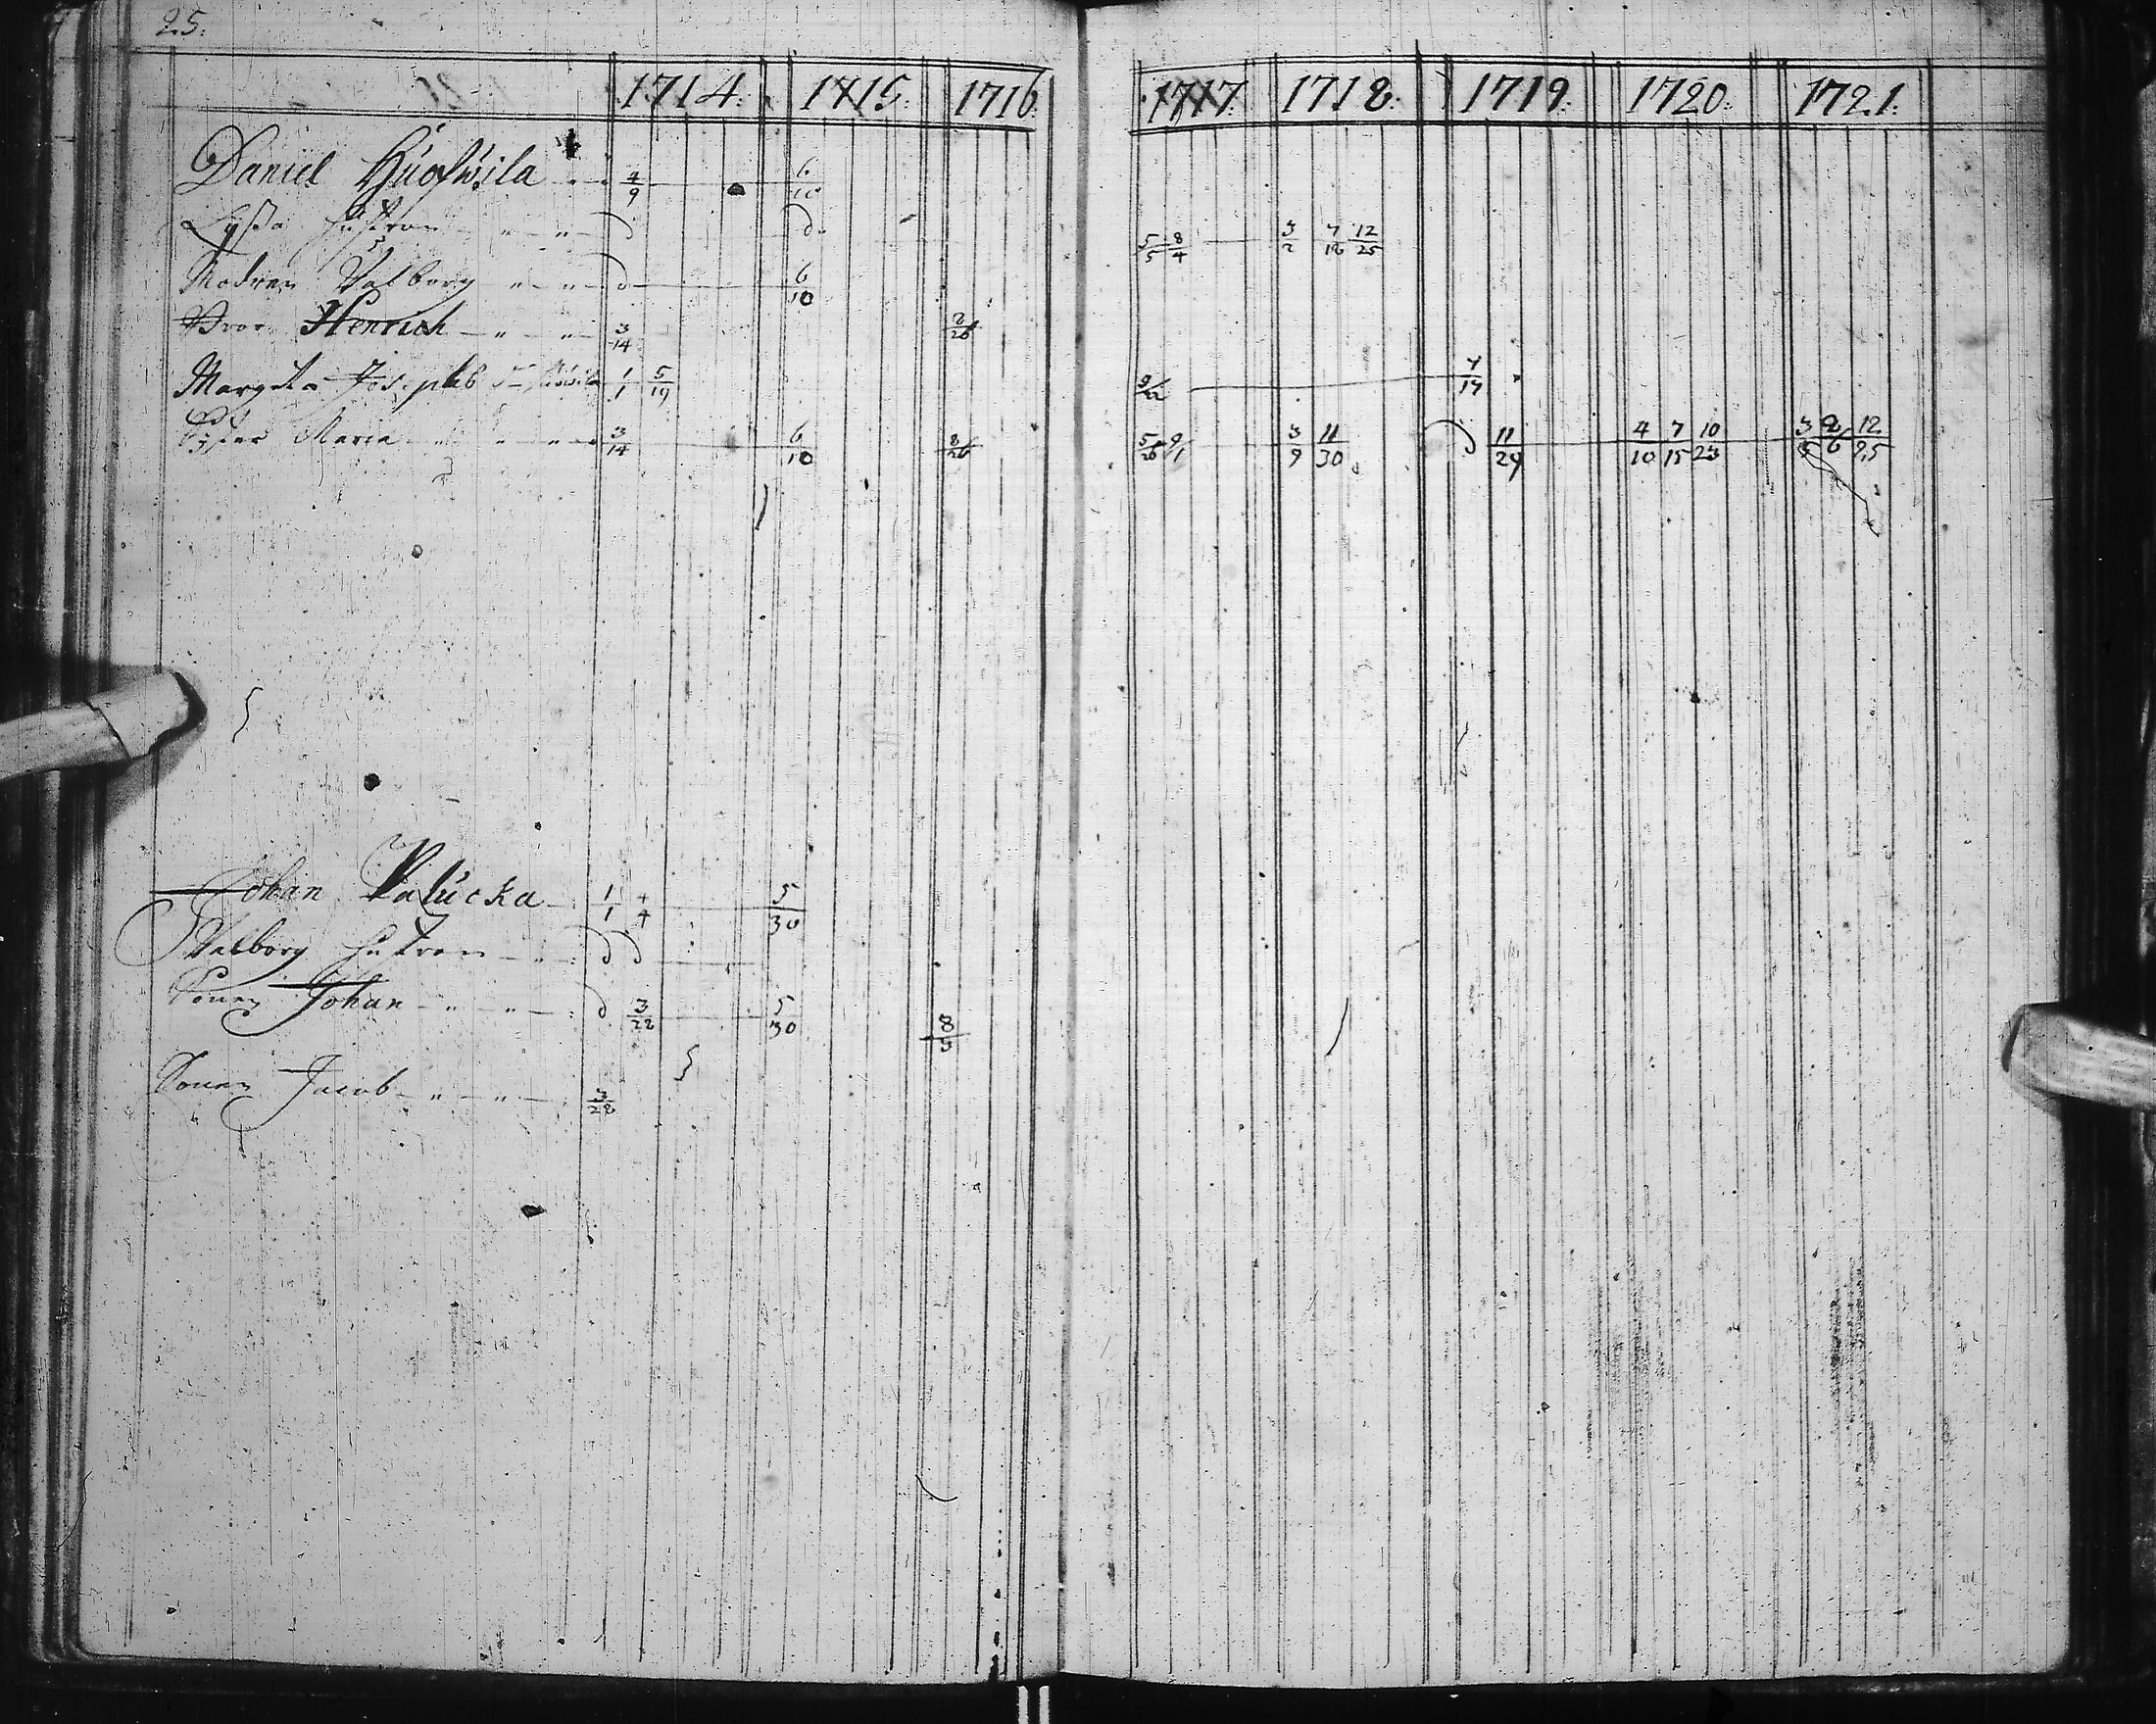 25.
1714. 1715. 1716. 1717. 1718. 1719. 1720. 1721.
Daniel 4/9 6/10
Lysta hustron d d 5/5 8/4 3/2 7/18 12/25
Modren Valborg d 6/10
Bror Henrich 3/14 2/26
Margeta Josephs 1/1 5/19 9/22 7/19
Syster Maria 3/14 6/10 8/26 5/26 9/1 3/9 11/30 d 11/29 4/10 7/15 10/23 3/5 2/6 12/25
Johan Palucka 1/1 4/4 5/30
Valborg hustron d d
Sonen Johan d 3/22 5/30 8/5
Sonen Jacob 3/28